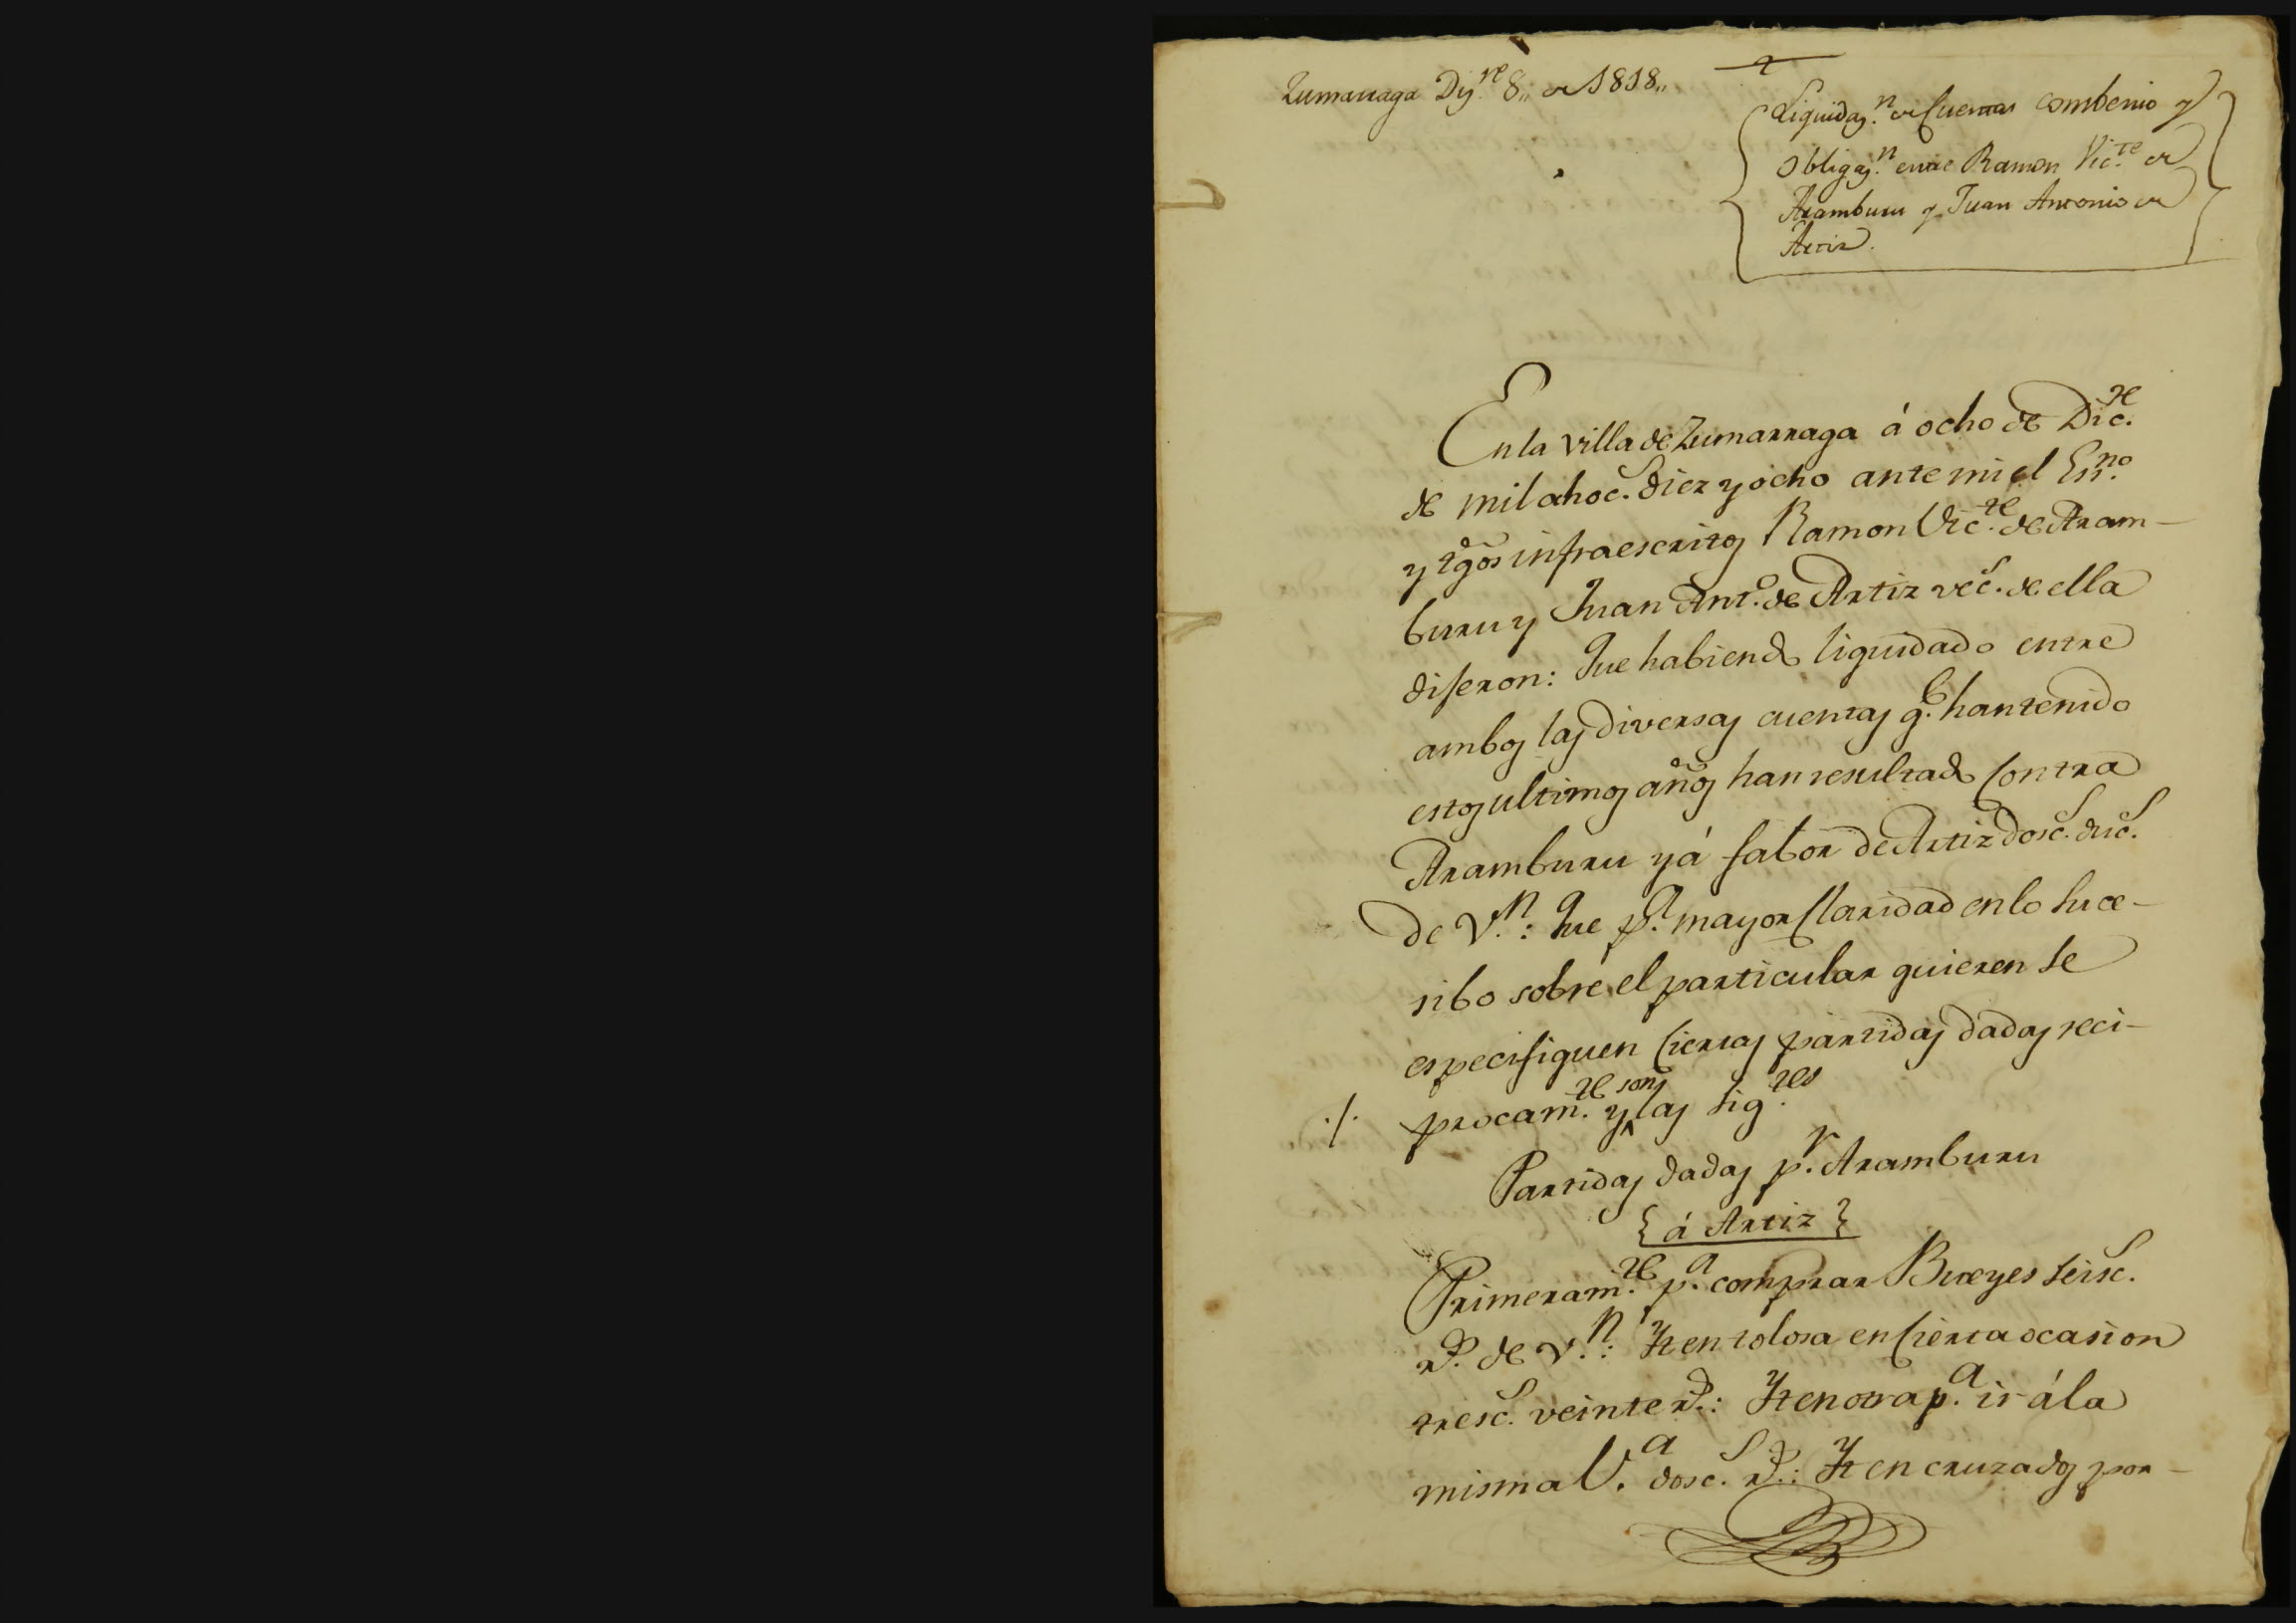 Zumarraga Dij.re 8,, de 1818,,
Liquidaz.n de Cuentas combenio y
Obligaz.n entre Ramon Vic.te de
Aramburu y Juan Antonio de
Artiz.
En la villa de Zumarraga á ocho de Dic.re
de mil ochoc.s diez y ocho ante mi el Ess.no
y tgõs infraescritos Ramon Vic.te de Aram-
buru y Juan Ant.o de Artiz vec.s de ella
dijeron: Que habiendo liquidado entre
ambos las diversas cuentas q.e han tenido
estos ultimos años han resultado contra
Aramburu y á fabor de Artiz dosc.s duc.s
de V.n: Que p.a mayor claridad en lo suce-
sibo sobre el particular quieren se
especifiquen ciertas partidas dadas reci-
./. procam.te y son las sig.tes
Partidas dadas p.r Aramburu
{ á Artiz }
Primeram.te p.a comprar Bueyes seisc.s
r.s de v.n: Yt en tolosa en cierta ocasion
tresc.s veinte r.s: Yt en otra p.a ir á la
misma V.a dosc.s r.s: Yt en cruzados por